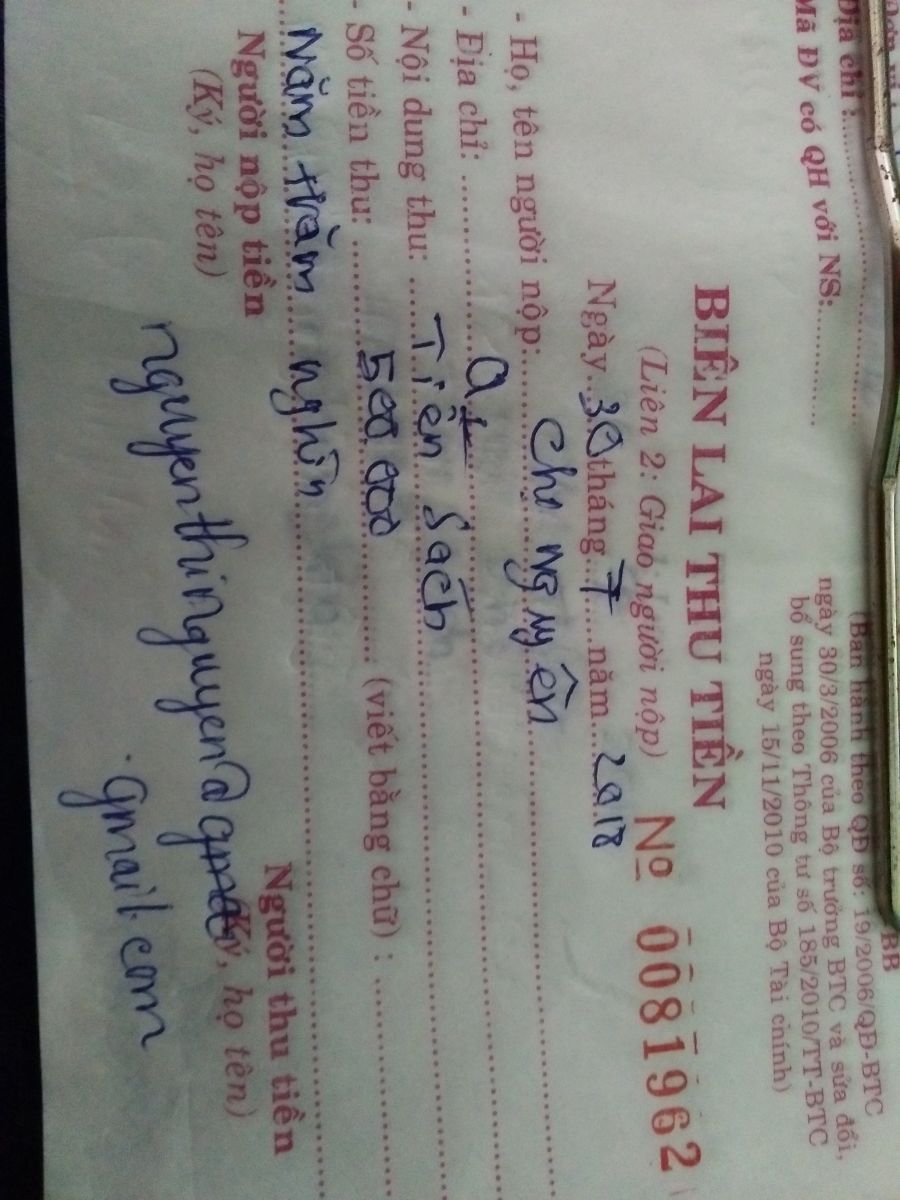 Địa chỉ:
Mã ĐV có QH với NS:
BB
(Ban hành theo QĐ số: 19/2006/QĐ-BTC
ngày 30/3/2006 của Bộ trưởng BTC và sửa đổi,
bổ sung theo Thông tư số 185/2010/TT-BTC
ngày 15/11/2010 của Bộ Tài chính)
BIÊN LAI THU TIỀN
(Liên 2: Giao người nộp) Nº 0081962
Ngày 30 tháng 7 năm 2018
- Họ, tên người nộp: Chị Nguyên
- Địa chỉ:
- Nội dung thu: Tiền Sách
- Số tiền thu: 500 000 (viết bằng chữ) :
Năm trăm nghìn
Người nộp tiền Người thu tiền
(Ký, họ tên) (Ký, họ tên)
nguyenthinguyen@
gmail.com